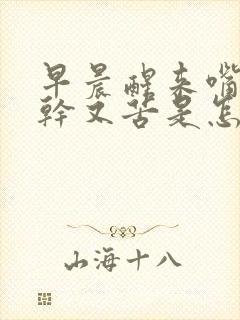 早晨醒来嘴
幹又苦是怎
山海十八